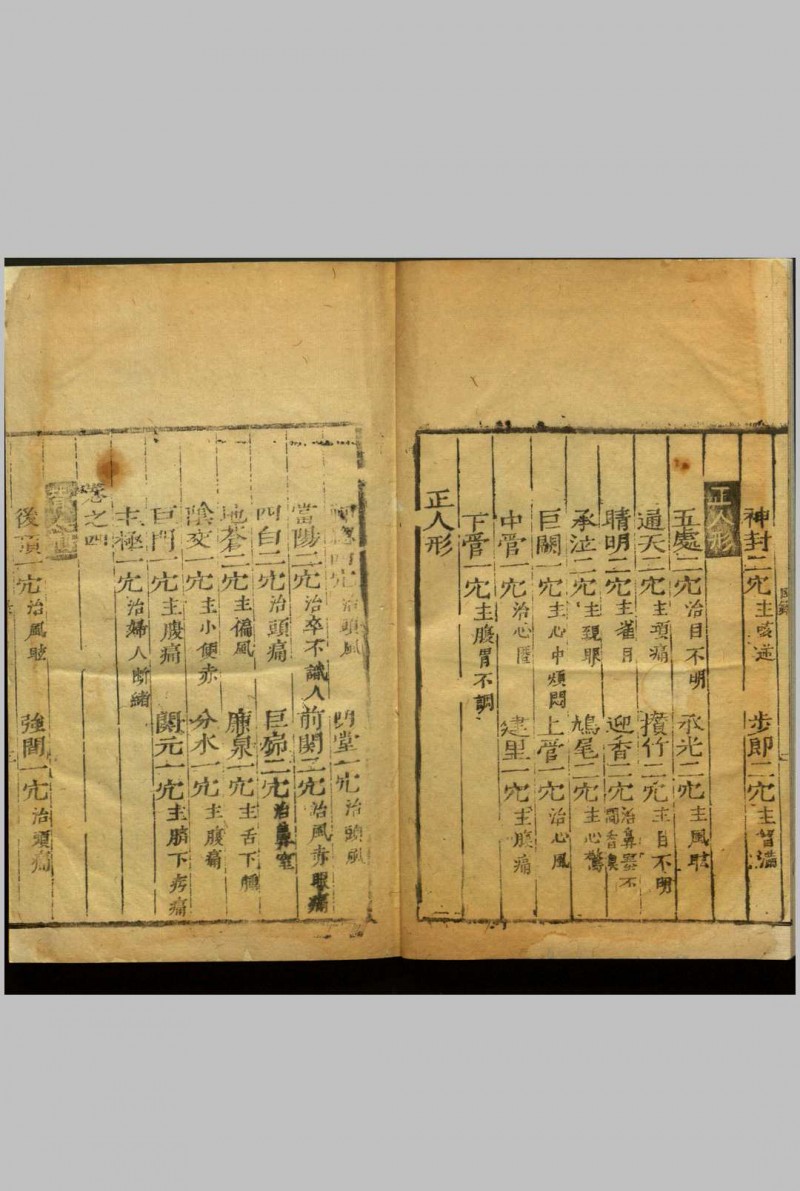 神封二穴主咳逆 步郎二穴主胷滿
正人形
五處二穴治目不明 承光二穴主風眩
通天二穴主項痛 攅竹二穴主目不明
睛明二穴主雀目 迎香二穴治鼻塞不聞香臭
承泣二穴主 鳩尾二穴主心驚
巨闕一穴主心中煩悶 上管一穴治心風
中管一穴治心匿 建里一穴主腹痛
下管一穴主腹胃不調
正人形
穴治頭風 明堂一穴治頭風
當陽二穴治卒不識人 前関二穴治風赤眼痛
四白二穴治頭痛 巨窌二穴治鼻窒
地蒼二穴主偏風 廉泉一穴主舌下腫
陰交一穴主小便赤 分水一穴主腹痛
巨門一穴主腹痛 関元一穴主臍下疞痛
主極一穴治婦人斷緒
卷之四
後頂一穴治風眩 強間一穴治頭痛